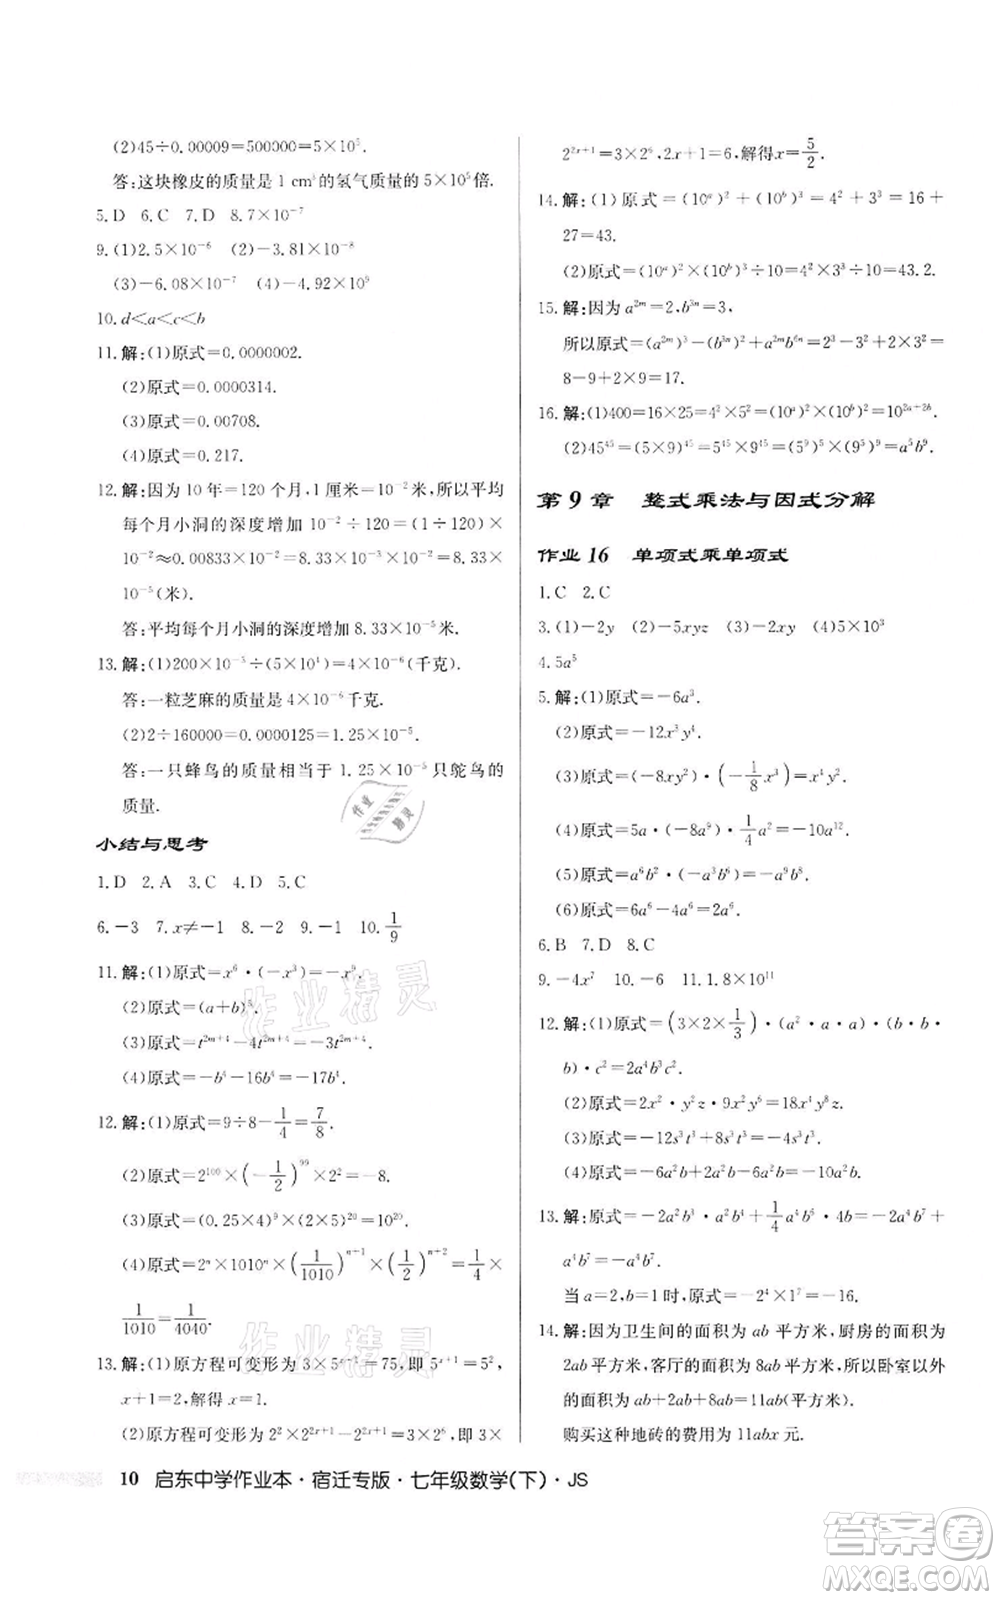 (2)45÷0.00009=500000=5×10⁵.
答:这块橡皮的质量是 1 cm³的氢气质量的 5×10⁵倍.
5.D 6.C 7.D 8.7×10⁻⁷
9.(1)2.5×10⁻⁶ (2)−3.81×10⁻⁸
(3)−6.08×10⁻⁷ (4)−4.92×10⁹
10.d<a<c<b
11.解:(1)原式=0.0000002.
(2)原式=0.0000314.
(3)原式=0.00708.
(4)原式=0.217.
12.解:因为 10 年=120 个月,1 厘米=10⁻²米,所以平均
每个月小洞的深度增加 10⁻²÷120=(1÷120)
×10⁻²≈0.00833×10⁻²=8.33×10⁻³×10⁻²=8.33×
10⁻⁵(米).
答:平均每个月小洞的深度增加 8.33×10⁻⁵米.
13.解:(1)200×10⁻³÷(5×10⁴)=4×10⁻⁶(千克).
答:一粒芝麻的质量是 4×10⁻⁶千克.
(2)2÷160000=0.0000125=1.25×10⁻⁵.
答:一只蜂鸟的质量相当于 1.25×10⁻⁵只鸵鸟的
质量.
小结与思考
1.D 2.A 3.C 4.D 5.C
6.−3 7.x≠−1 8.−2 9.−1 10.1/9
11.解:(1)原式=x⁶·(−x³)=−x⁹.
(2)原式=(a+b)⁵.
(3)原式=t²ᵐ⁺⁴−4t²ᵐ⁺⁴=−3t²ᵐ⁺⁴.
(4)原式=−b⁴−16b⁴=−17b⁴.
12.解:(1)原式=9÷8−1/4=7/8.
(2)原式=2¹⁰⁰×(−1/2)⁹⁹×4=−8.
(3)原式=(0.25×4)⁹×(2×5)²⁰=10²⁰.
(4)原式=2ⁿ×1010ⁿ×(1/1010)ⁿ⁺¹×(1/2)ⁿ⁺²=1/4×
1/1010=1/4040.
13.解:(1)原方程可变形为 3×5ˣ⁺¹=75,即 5ˣ⁺¹=5²,
x+1=2,解得x=1.
(2)原方程可变形为 2²×2²ˣ⁺¹=3×2⁶,即 3×
2²ˣ⁺¹=3×2⁶,2x+1=6,解得x=5/2.
14.解:(1)原式=(10ᵃ)²+(10ᵇ)³=4²+3³=16+
27=43.
(2)原式=(10ᵃ)²×(10ᵇ)³÷10=4²×3³÷10=43.2.
15.解:因为 a²ᵐ=2,b³ⁿ=3,
所以原式=(a²ᵐ)³−(b³ⁿ)²+a²ᵐb⁶ⁿ=2³−3²+2×3²=
8−9+2×9=17.
16.解:(1)400=16×25=4²×5²=(10ᵃ)²×(10ᵇ)²=10²ᵃ⁺²ᵇ.
(2)45⁴⁵=(5×9)⁴⁵=5⁴⁵×9⁴⁵=(5⁵)⁹×(9⁵)⁹=a⁹b⁹.
第 9 章 整式乘法与因式分解
作业 16 单项式乘单项式
1.C 2.C
3.(1)−2y (2)−5xyz (3)−2xy (4)5×10³
4.5a⁵
5.解:(1)原式=−6a³.
(2)原式=−12x³y⁴.
(3)原式=(−8xy²)·(−1/8x³)=x⁴y².
(4)原式=5a·8a⁹·1/4a²=10a¹².
(5)原式=a⁶b³·(−a²b⁶)=−a⁸b⁹.
(6)原式=6a⁶−4a⁶=2a⁶.
6.B 7.D 8.C
9.−4x⁷ 10.−6 11.1.8×10¹¹
12.解:(1)原式=(3×2×1/3)·(a²·a·a)·(b·b·
b)·c²=2a⁴b³c².
(2)原式=2x²·y²z·9x²y⁶=18x⁴y⁸z.
(3)原式=−16s³t³+8s³t³=−8s³t³.
(4)原式=−6a²b+2a²b−6a²b=−10a²b.
13.解:原式=−2a²b³·a²b⁴+1/4a⁴b⁶·4b=−2a⁴b⁷+
a⁴b⁷=−a⁴b⁷.
当 a=2,b=1 时,原式=−2⁴×1⁷=−16.
14.解:因为卫生间的面积为 ab 平方米,厨房的面积为
2ab平方米,客厅的面积为8ab平方米,所以卧室以外
的面积为 ab+2ab+8ab=11ab(平方米).
购买这种地砖的费用为 11abx 元.
10 启东中学作业本·宿迁专版·七年级数学(下)·JS
作业精灵
作业精灵
作业精灵
答案圈
MXQE.COM